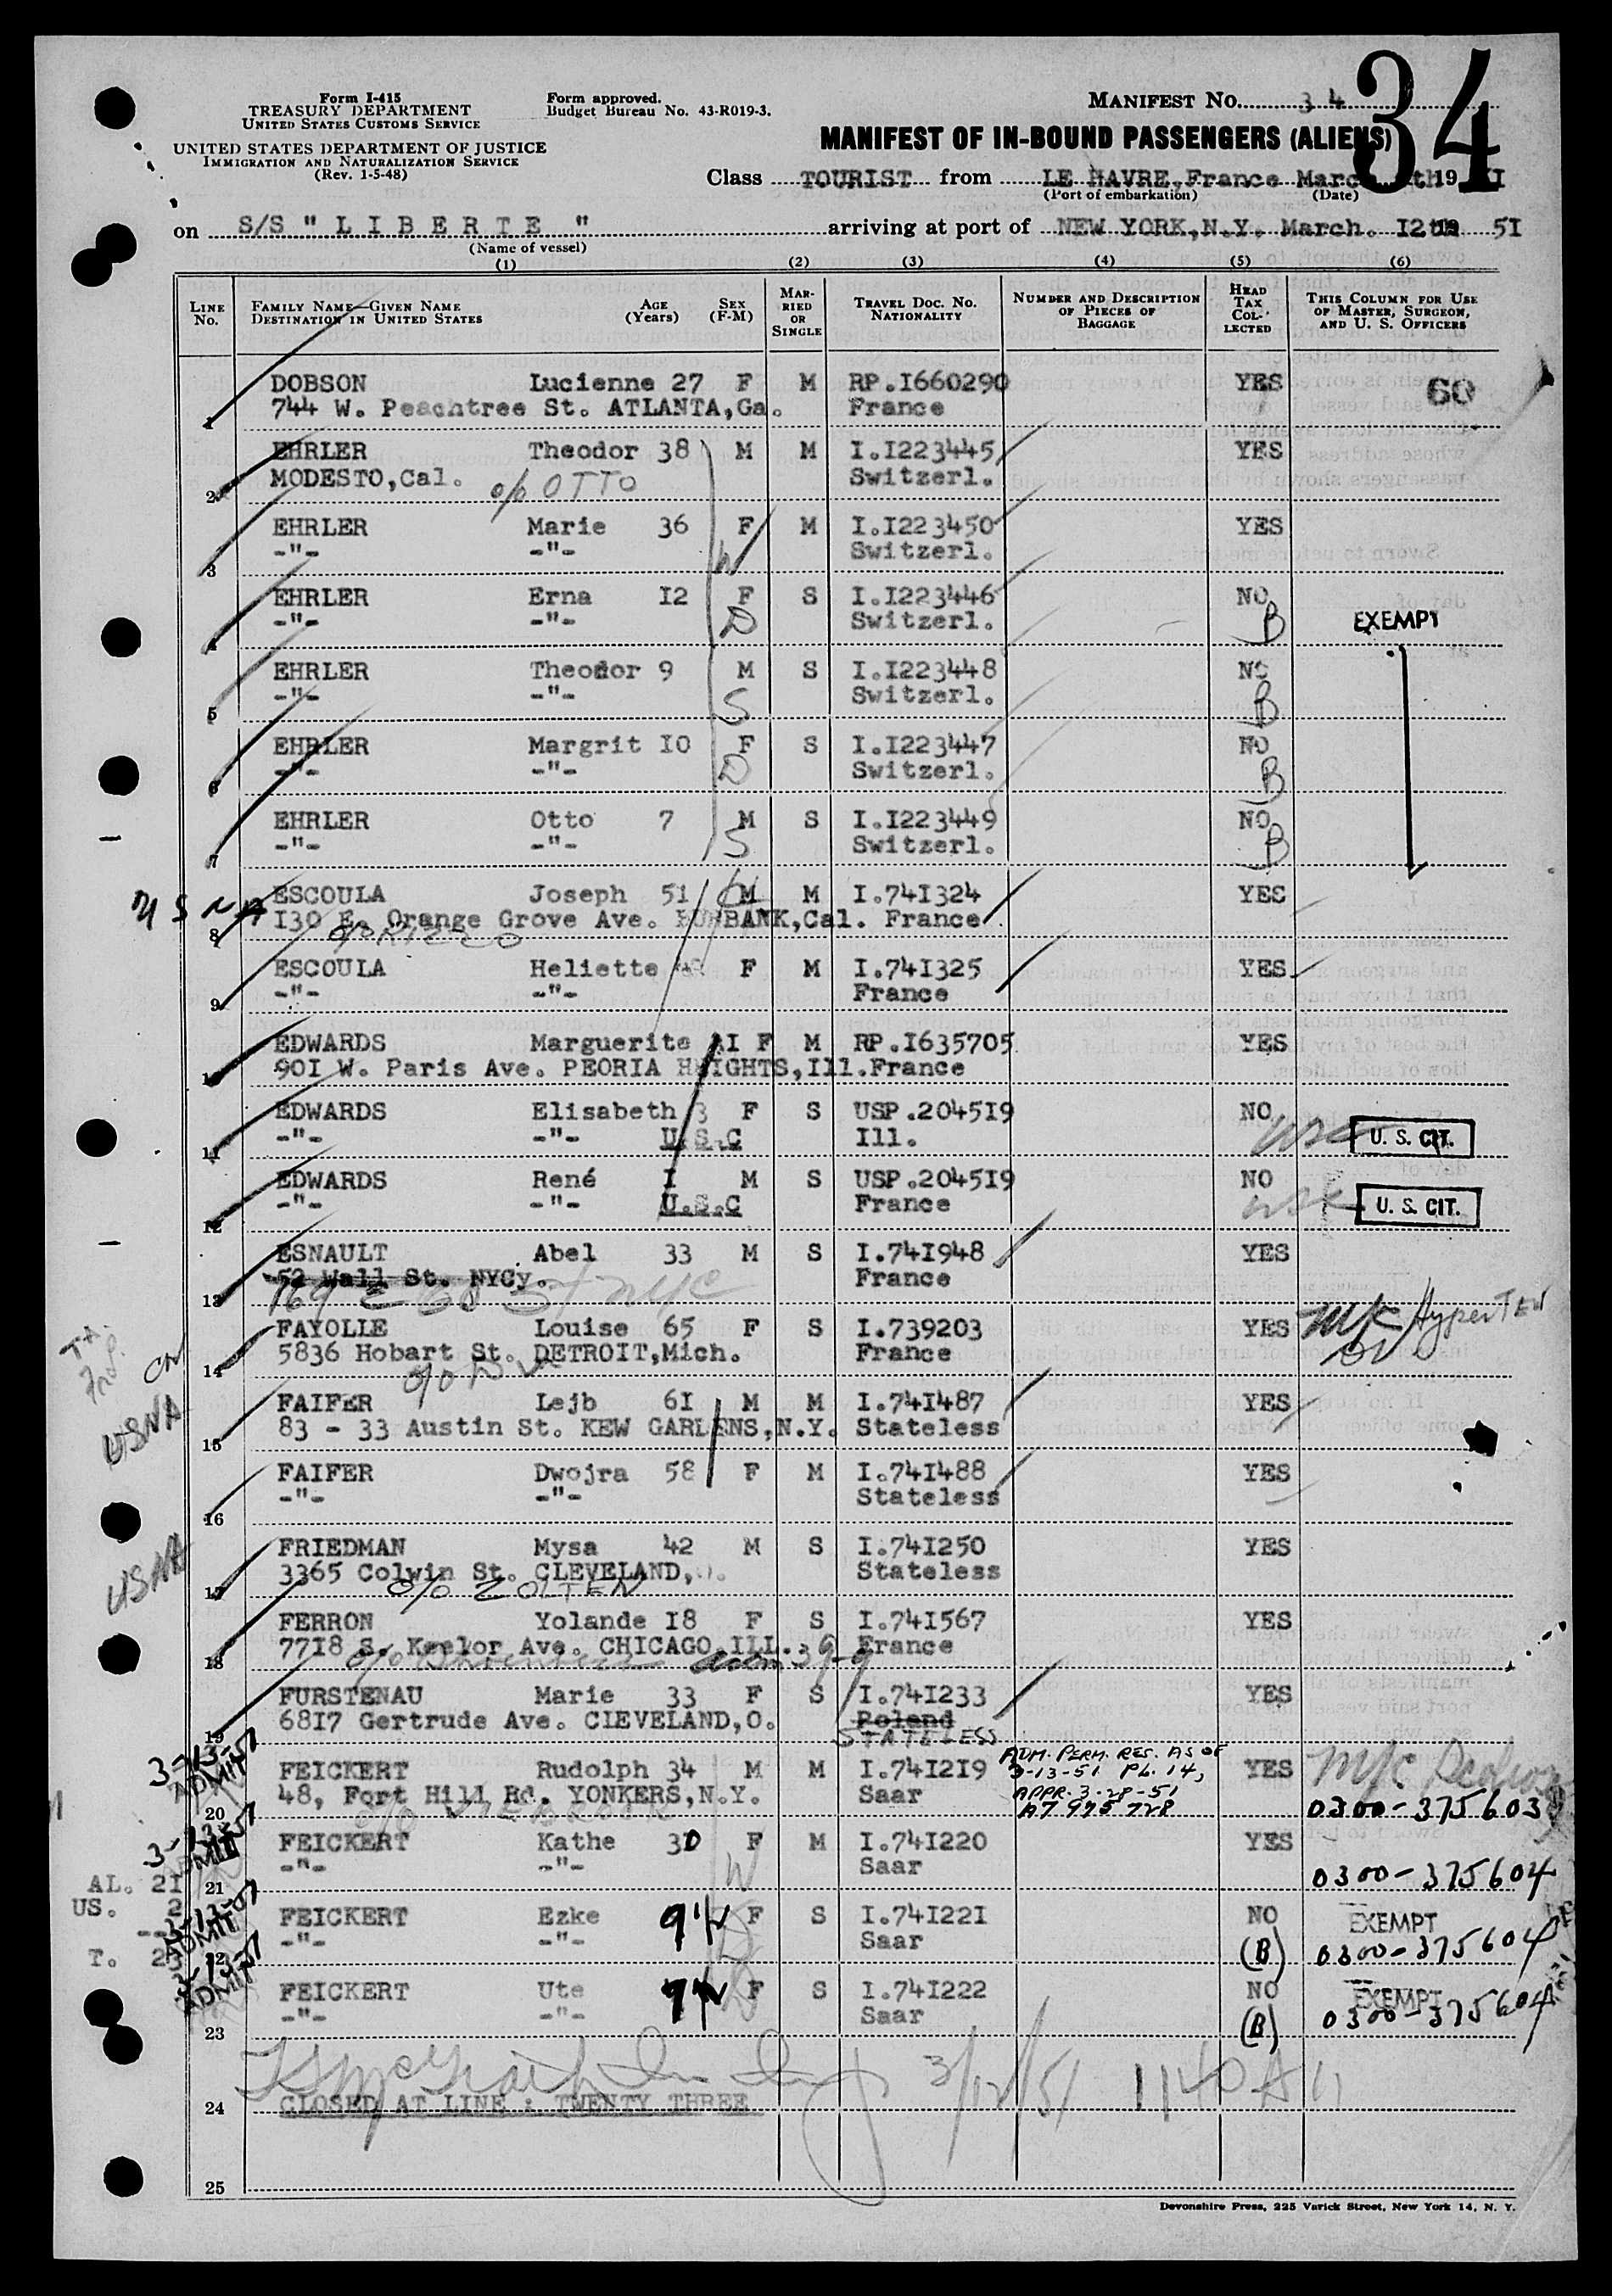 34
Form I-415
TREASURY DEPARTMENT
UNITED STATES CUSTOMS SERVICE
UNITED STATES DEPARTMENT OF JUSTICE
IMMIGRATION AND NATURALIZATION SERVICE
(Rev. 1-5-48)
Form approved.
Budget Bureau No. 43-R019-3.
MANIFEST No. 34
MANIFEST OF IN-BOUND PASSENGERS (ALIENS)
Class TOURIST from LE HAVRE, France March 19
(Port of embarkation) (Date)
on S/S " L I B E R T E " arriving at port of NEW YORK, N.Y. March. I2 51
(Name of vessel)
(1) (2) (3) (4) (5) (6)
LINE No.
FAMILY NAME—GIVEN NAME DESTINATION IN UNITED STATES
AGE (Years)
SEX (F-M)
MARRIED OR SINGLE
TRAVEL DOC. No. NATIONALITY
NUMBER AND DESCRIPTION OF PIECES OF BAGGAGE
HEAD TAX COLLECTED
THIS COLUMN FOR USE OF MASTER, SURGEON, AND U. S. OFFICERS
DOBSON Lucienne 27 F M RP.I660290 YES 60
1 744 W. Peachtree St. ATLANTA,Ga. France
EHRLER Theodor 38 M M I.I223445 YES
2 MODESTO,Cal. c/o OTTO Switzerl.
EHRLER Marie 36 F M I.I223450 YES
3 -"- -"- W Switzerl.
EHRLER Erna I2 F S I.I223446 NO
4 -"- -"- D Switzerl. B EXEMPT
EHRLER Theodor 9 M S I.I223448 NO
5 -"- -"- S Switzerl. B
EHRLER Margrit IO F S I.I223447 NO
6 -"- -"- D Switzerl. B
EHRLER Otto 7 M S I.I223449 NO
7 -"- -"- S Switzerl. B
USNA ESCOULA Joseph 51 M M I.74I324 YES
8 I30 E. Orange Grove Ave. BURBANK,Cal. France
ESCOULA Heliette F M I.74I325 YES
9 -"- -"- France
EDWARDS Marguerite F M RP.I635705 YES
10 90I W. Paris Ave. PEORIA HEIGHTS,Ill. France
EDWARDS Elisabeth 3 F S USP.2045I9 NO
11 -"- -"- U.S.C Ill. usc U. S. CIT.
EDWARDS René I M S USP.2045I9 NO
12 -"- -"- U.S.C France usc U. S. CIT.
ESNAULT Abel 33 M S I.74I948 YES
52 Wall St. NYCy. France
13 169 E 68 St NYC
FAYOLLE Louise 65 F S I.739203 YES
14 5836 Hobart St. DETROIT,Mich. France
USNA FAIFER Lejb 6I M M I.74I487 YES
15 83 - 33 Austin St. KEW GARDENS,N.Y. Stateless
FAIFER Dwojra 58 F M I.74I488 YES
16 -"- -"- Stateless
USNA FRIEDMAN Mysa 42 M S I.74I250 YES
3365 Colwin St. CLEVELAND, Stateless
17 c/o ZOLTEN
FERRON Yolande I8 F S I.74I567 YES
18 77I8 S. Keelor Ave. CHICAGO,ILL. France
FURSTENAU Marie 33 F S I.74I233 YES
68I7 Gertrude Ave. CLEVELAND,O. Poland
19 STATELESS
3-13-51 ADMIT FEICKERT Rudolph 34 M M I.74I2I9 YES
48, Fort Hill Rd. YONKERS,N.Y. Saar
ADM. PERM. RES. AS OF
3-13-51 PL. 14,
APPR. 3-28-51
A7 975 728
20 0300-375603
3-13-51 ADMIT FEICKERT Kathe 30 F M I.74I220 YES
AL. 2I
21 -"- -"- W Saar 0300-375604
US. 2
3-13-51 ADMIT FEICKERT Ezke F S I.74I22I NO EXEMPT
T. 23
22 -"- -"- D Saar (B) 0300-375604
3-13-51 ADMIT FEICKERT Ute F S I.74I222 NO EXEMPT
23 -"- -"- D Saar (B) 0300-375604
3/12/51 1140 A
24 CLOSED AT LINE : TWENTY THREE
25
Devonshire Press, 225 Varick Street, New York 14, N. Y.